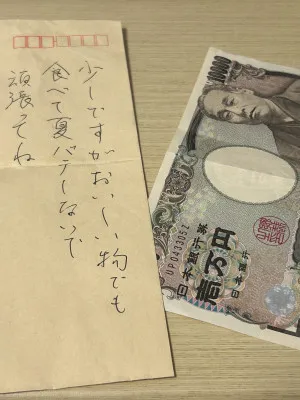 少しですがおいしい物でも
食べて夏バテしないで
頑張ってね
10000
日本銀行券
壱万円
日本銀行